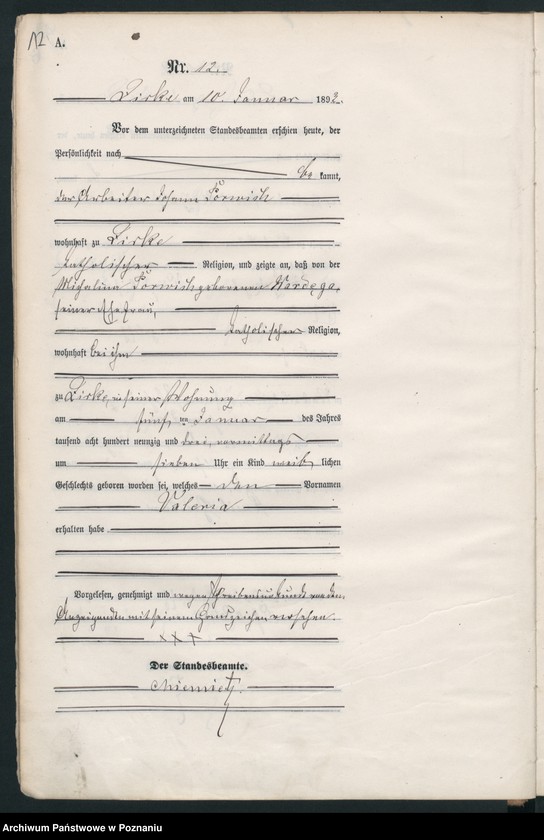 12
A.
Nr. 12.
Zirke am 10. Januar 1893.
Vor dem unterzeichneten Standesbeamten erschien heute, der
Persönlichkeit nach
be kannt,
der Arbeiter Johann
wohnhaft zu Zirke
katholischer Religion, und zeigte an, daß von der
Michalina geborenen
seiner Ehefrau,
katholischer Religion,
wohnhaft bei ihm
zu Zirke, in seiner Wohnung
am fünften Januar des Jahres
tausend acht hundert neunzig und drei, vormittags
um sieben Uhr ein Kind weib lichen
Geschlechts geboren worden sei, welches den Vornamen
Valeria
erhalten habe
Vorgelesen, genehmigt und wegen Schreibensunkunde von dem
Anzeigenden mit seinem Handzeichen versehen.
xxx
Der Standesbeamte.
Archiwum Państwowe w Poznaniu